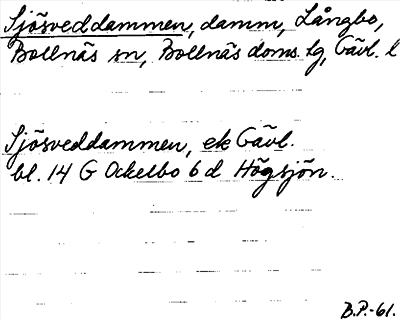 Sjösveddammen, damm, Långbo,
Bollnäs sn, Bollnäs doms. lg, Gävl. l
Sjösveddammen, ek Gävl.
bl. 14 G Ockelbo 6 d Högsjön.
B.P.-61.